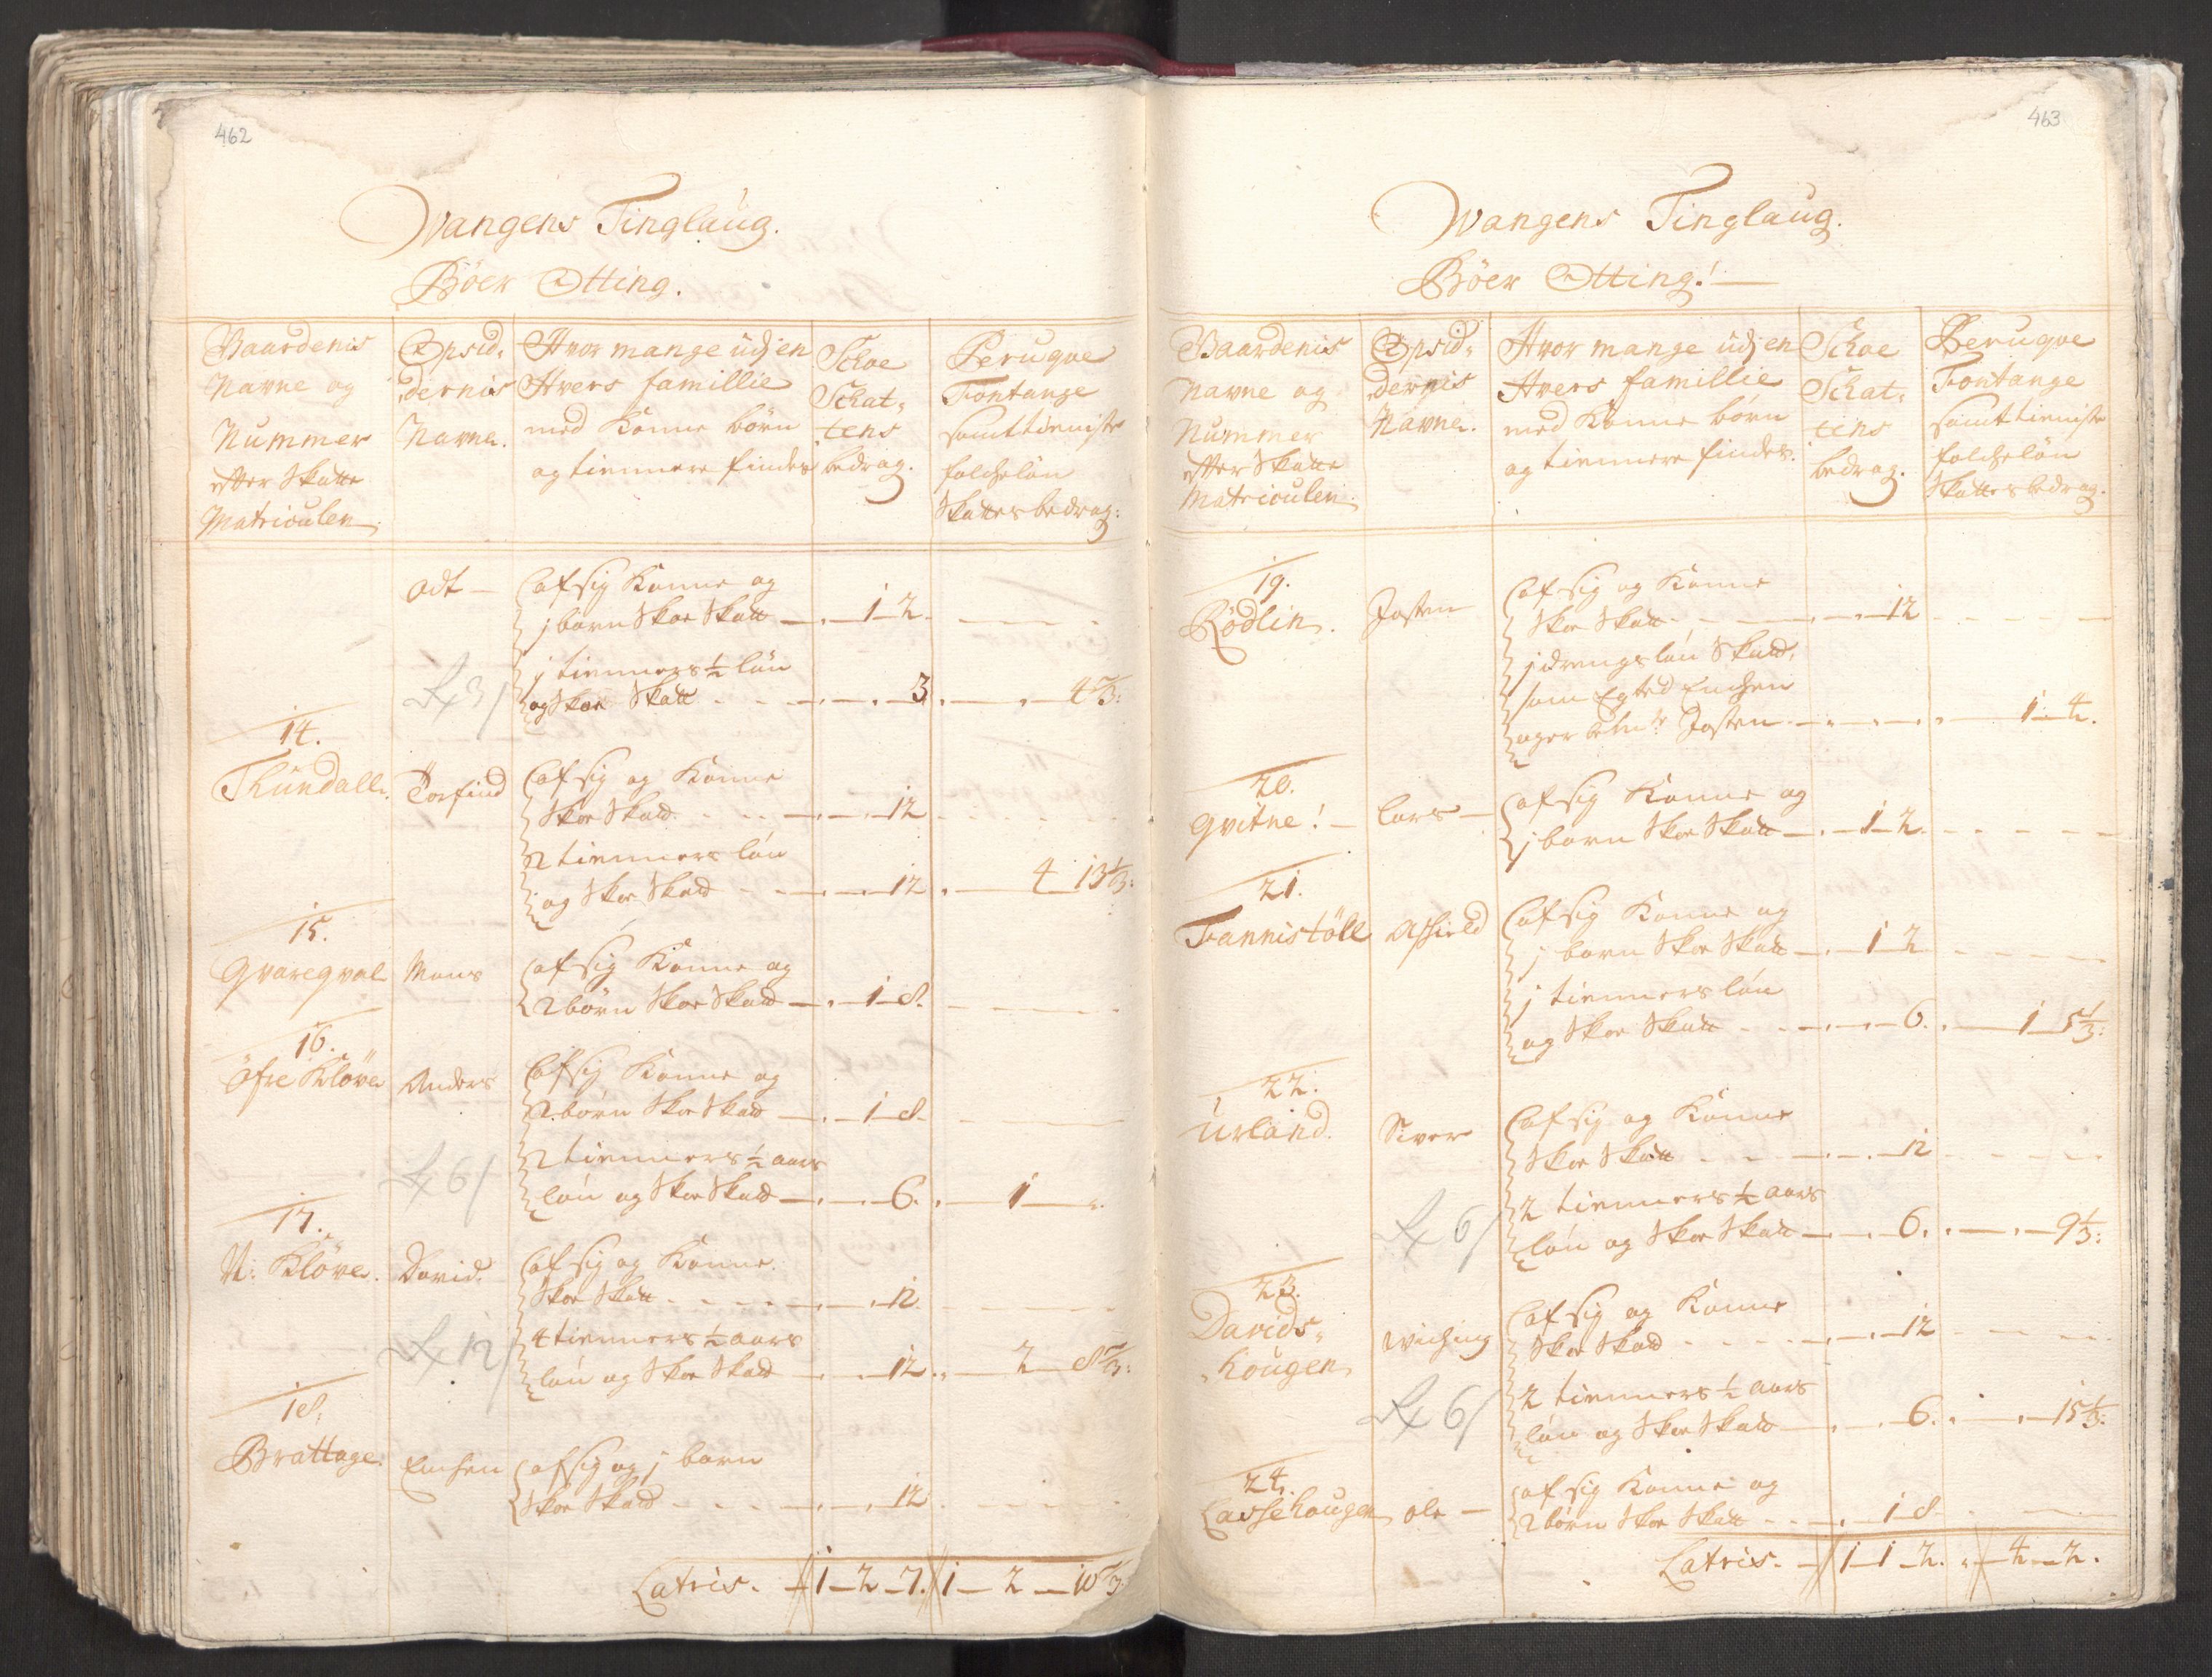 462
Wangens Tinglaug.
Böer Otting.
Gaardenis Navne og Nummer efter Skatte Matriculen.
Opsiddernis Navne.
Hvor mange udj en Hvers famillie med Konne börn og tiennere findes
Schoe Schattens bedrag.
Peruqve Fontange samt tieniste folcheløn Skattes bedrag.
Odt — af sig Konne og
j barn Skoe Skatt — 1 — 2.
j tienners ½ løn
og Skoe Skatt — 3 — 4 2/3:
14.
Thundall. Torfind af sig og Konne
Skoe Skatt — 12
2 tienners løn
og Skoe Skatt — 12 — 4 13 1/3:
15.
Gvaregval Mons af sig Konne og
2 börn Skoe Skatt — 1 — 8.
16.
Öfre Klöve Anders af sig Konne og
2 börn Skoe Skatt — 1 — 8.
2 tienners ½ aars
løn og Skoe Skatt — 6. — 1 —
17.
N: Klöve. David. af sig og Konne
Skoe Skatt — 12.
4 tienners ½ aars
løn og Skoe Skatt — 12. — 2 — 8 2/3:
18.
Brattage. Enchen af sig og j barn
Skoe Skatt — 12
Latris. — 1 — 2 — 7. 1 — 2 — 10 2/3
463
Wangens Tinglaug.
Böer Otting! —
Gaardenis Navne og Nummer efter Skatte Matriculen.
Opsiddernis Navne.
Hvor mange udj en Hvers famillie med Konne börn og tiennere findes.
Schoe Schattens bedrag.
Peruqve Fontange samt tieniste folcheløn Skattes bedrag.
19.
Rödlin. Josten af sig og Konne
Skoe Skatt — 12
j drengs løn Skatt,
som Egted Enchen
Josten — 1 — 4.
20.
Gvitne! — Lars — af sig Konne og
j barn Skoe Skatt — 1 — 2.
21.
Trannistöll Assield af sig Konne og
j barn Skoe Skatt — 1 2
j tienners løn
og Skoe Skatt — 6. — 1 5 1/3:
22.
Urland. Siver af sig og Konne
Skoe Skatt — 12
2 tienners ½ aars
løn og Skoe Skatt — 6. — 9 1/3:
23.
Davids,
hougen Wiching af sig og Konne
Skoe Skatt — 12
2 tienners ½ aars
løn og Skoe Skatt — 6. — 15 1/3:
24.
Lassehougen Ole — af sig Konne og
2 börn Skoe Skatt — 1 8
Latris. — 1 — 1 — 2. — 4 — 2.